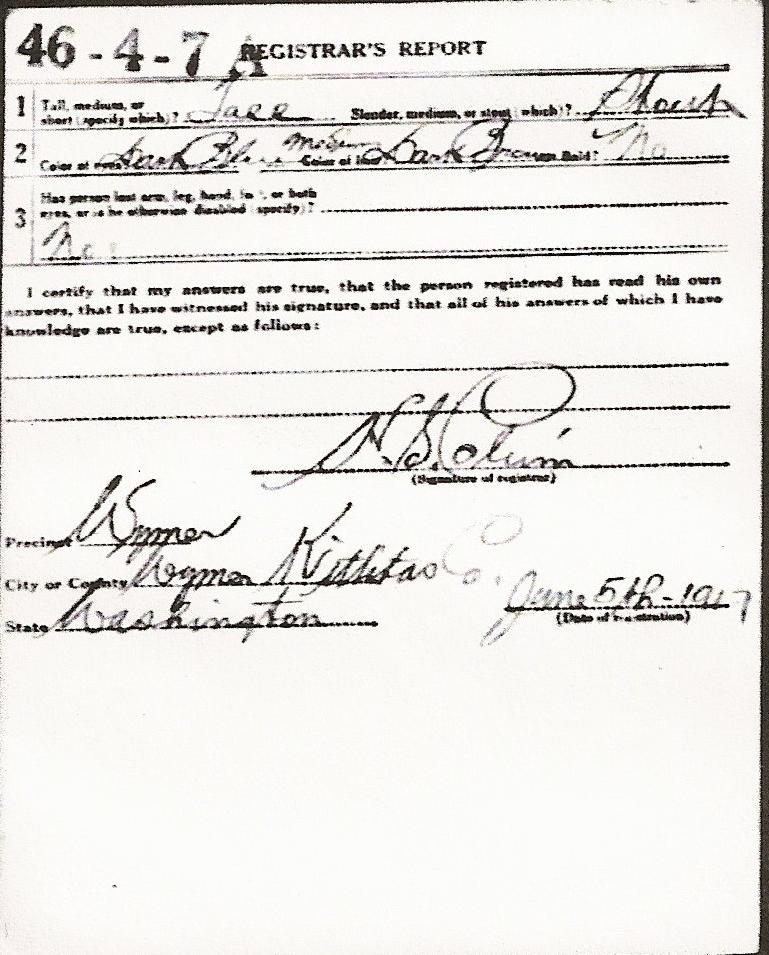 46-4-7 A REGISTRAR'S REPORT
1 Tall, medium, or short (specify which)? Tall Slender, medium, or stout (which)? Stout
2 Color of eyes? Dark Blue Medium Color of hair? Dark Brown Bald? No
3 Has person lost arm, leg, hand, foot, or both
eyes, or is he otherwise disabled (specify)?
No.
I certify that my answers are true, that the person registered has read his own
answers, that I have witnessed his signature, and that all of his answers of which I have
knowledge are true, except as follows:
(Signature of registrar)
Precinct Wymer
City or County Wymer Kittitas Co.
State Washington June 5th - 1917
(Date of registration)